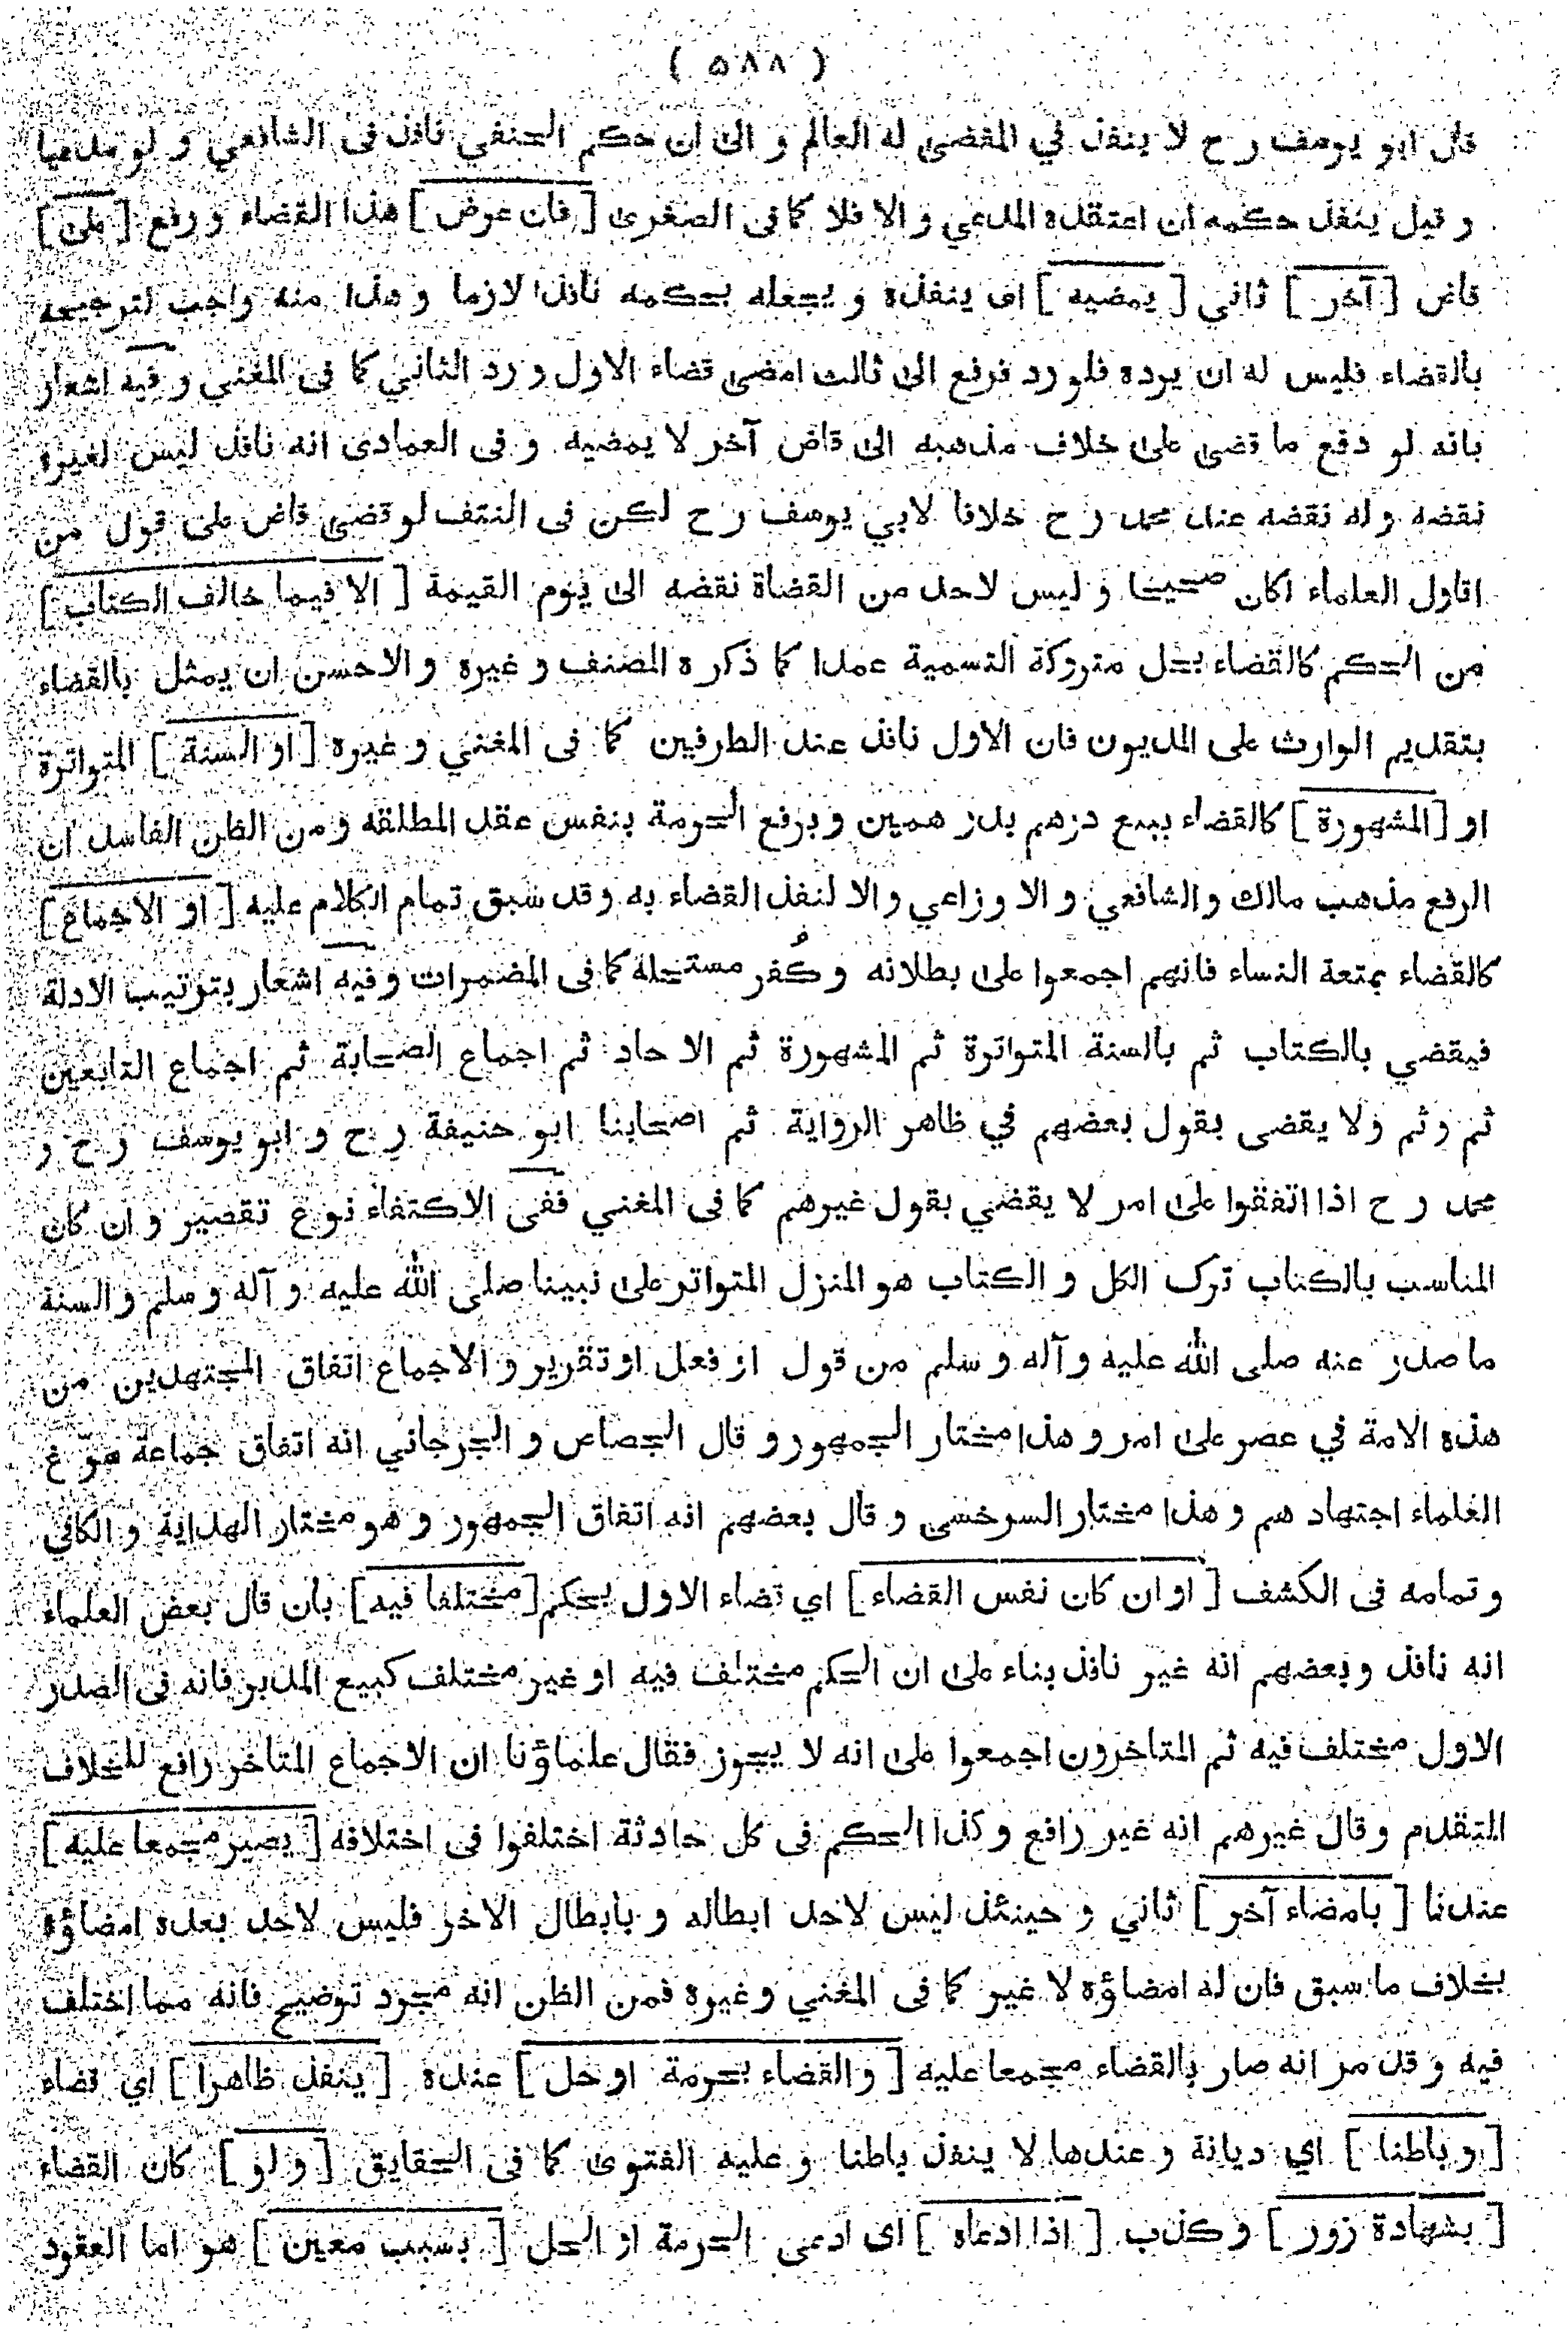 ( ۵۸۸ )
قال ابو يوسف ر ح لا ينفذ في المقضى له العالم و الى ان حكم الحنفي نافذ فى الشافعي و لو مدعيا
و قيل ينفذ حكمه ان اعتقده المدعي و الا فلا كما فى الصغرى [ فان عرض ] هذا القضاء و رفع [ على ]
قاض [ آخر ] ثاني [ يمضيه ] اى ينفذه و يجعله بحكمه نافذا لازما و هذا منه واجب لترجيحه
بالقضاء فليس له ان يرده فلو رد فرفع الى ثالث امضى قضاء الاول و رد الثاني كما فى المغني و فيه اشعار
بانه لو دفع ما قضى على خلاف مذهبه الى قاض آخر لا يمضيه و فى العمادى انه نافذ ليس لغيره
نقضه وله نقضه عند محمد ر ح خلافا لابي يوسف ر ح لكن فى النتف لو قضى قاض على قول من
اقاول العلماء اكان صحيحا و ليس لاحد من القضاة نقضه الى يوم القيمة [ الا فيما خالف الكتاب ]
من الحكم كالقضاء بحل متروكة التسمية عمدا كما ذكره المصنف و غيره والاحسن ان يمثل بالقضاء
بتقديم الوارث على المديون فان الاول نافذ عند الطرفين كما فى المغني و غيره [ او السنة ] المتواترة
او [ المشهورة ] كالقضاء ببيع درهم بدرهمين و برفع الحرمة بنفس عقد المطلقه و من الظن الفاسد ان
الرفع مذهب مالك والشافعي و الاوزاعي والا لنفذ القضاء به وقد سبق تمام الكلام عليه [ او الاجماع ]
كالقضاء بمتعة النساء فانهم اجمعوا على بطلانه وكُفر مستحله كما فى المضمرات و فيه اشعار بترتيب الادلة
فيقضي بالكتاب ثم بالسنة المتواترة ثم المشهورة ثم الاحاد ثم اجماع الصحابة ثم اجماع التابعين
ثم وثم ولا يقضى بقول بعضهم في ظاهر الرواية ثم اصحابنا ابو حنيفة ر ح و ابو يوسف ر ح و
محمد ر ح اذا اتفقوا على امر لا يقضي بقول غيرهم كما فى المغني ففى الاكتفاء نوع تقصير و ان كان
المناسب بالكتاب ترك الكل و الكتاب هو المنزل المتواتر على نبينا صلى الله عليه و آله و سلم والسنة
ما صدر عنه صلى الله عليه و آله و سلم من قول او فعل او تقرير و الاجماع اتفاق المجتهدين من
هذه الامة في عصر على امر و هذا مختار الجمهور و قال الجصاص و الجرجاني انه اتفاق جماعة سوّغ
العلماء اجتهادهم و هذا مختار السرخسى و قال بعضهم انه اتفاق الجمهور و هو مختار الهداية و الكافي
و تمامه فى الكشف [ او ان كان نفس القضاء ] اي قضاء الاول بحكم [ مختلفا فيه ] بان قال بعض العلماء
انه نافذ وبعضهم انه غير نافذ بناء على ان الحكم مختلف فيه او غير مختلف كبيع المدبر فانه فى الصدر
الاول مختلف فيه ثم المتاخرون اجمعوا على انه لا يجوز فقال علماؤنا ان الاجماع المتاخر رافع للخلاف
المتقدم وقال غيرهم انه غير رافع وكذا الحكم فى كل حادثة اختلفوا فى اختلافه [ يصير مجمعا عليه ]
عندنا [ بامضاء آخر ] ثاني و حينئذ ليس لاحد ابطاله و بابطال الاخر فليس لاحد بعده امضاؤه
بخلاف ما سبق فان له امضاؤه لا غير كما فى المغني وغيره فمن الظن انه مجرد توضيح فانه مما اختلف
فيه وقد مر انه صار بالقضاء مجمعا عليه [ والقضاء بحرمة او حل ] عنده [ ينفذ ظاهرا ] اي قضاء
[ و باطنا ] اي ديانة و عندها لا ينفذ باطنا و عليه الفتوى كما فى الحقايق [ و لو ] كان القضاء
[ بشهادة زور ] و كذب [ اذا ادعاه ] اى ادعى الحرمة او الحل [ بسبب معين ] هو اما العقود